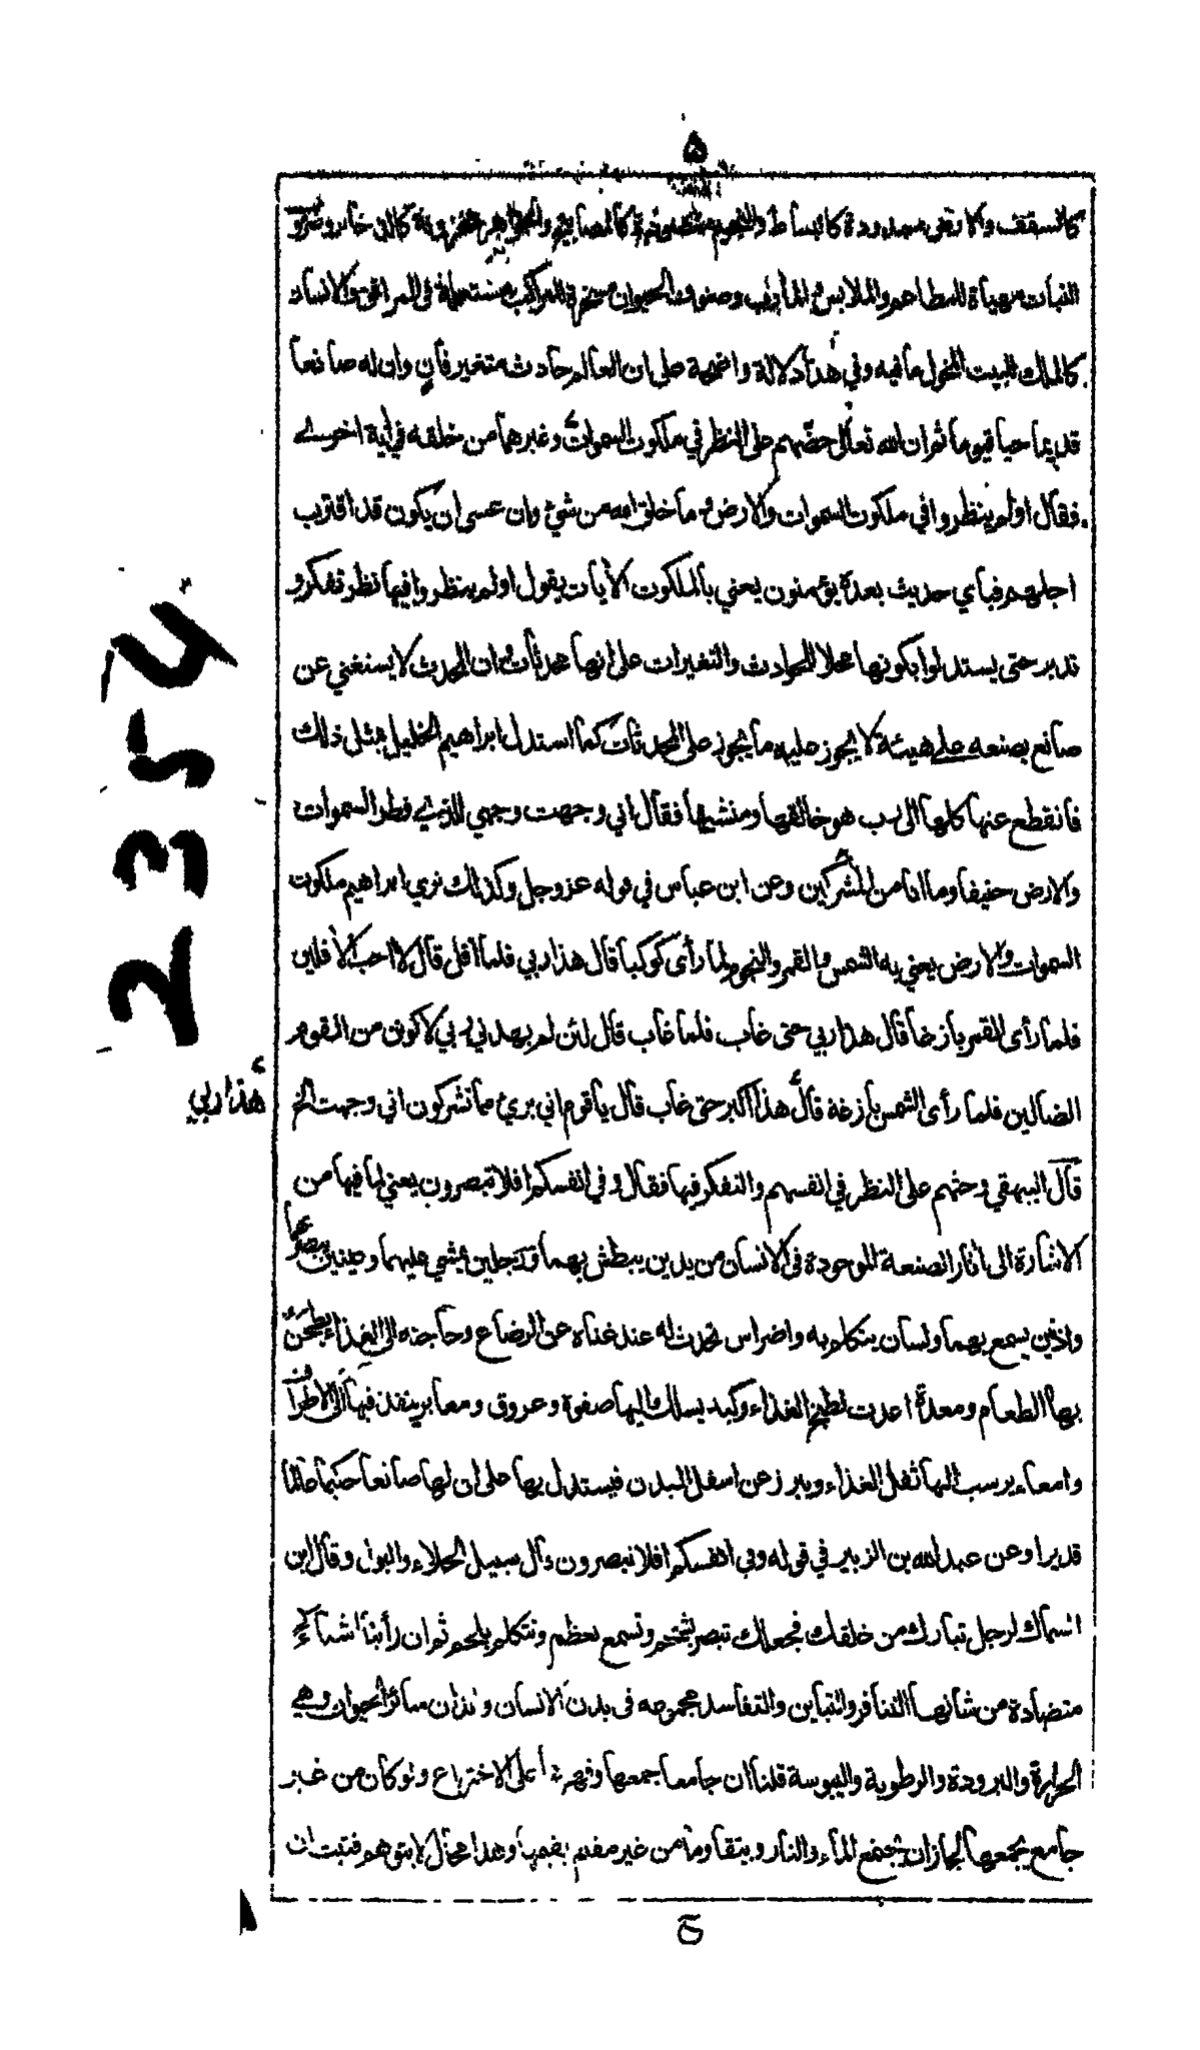 ٥
كالسقف والارض ممدودة كالبساط والنجوم منضودة كالمصابيح والجواهر مخزونة كالذخائر وضروب
النبات مهيأة للمطاعم والملابس والمأرب وصنوف الحيوان مسخرة للمراكب مستعملة في المرافق والانسان
كالملك للبيت المخول ما فيه وفي هذا دلالة واضحة على ان العالم حادث متغير فان وان له صانعا
قديما حيا قيوما ثم ان الله تعالى حضهم على النظر في ملكوت السموات وغيرهما من خلقه في اية اخرى
فقال اولم ينظروا في ملكوت السموات والارض وما خلق الله من شيء وان عسى ان يكون قد اقترب
اجلهم فباي حديث بعده يؤمنون يعني بالملكوت الأيات يقول اولم ينظروا فيها نظر تفكر و
تدبر حتى يستدلوا بكونها محلا للحوادث والتغيرات على انها محدثات وان المحدث لا يستغني عن
صانع يصنعه على هيئة لا يجوز عليه ما يجوز على المحدثات كما استدل ابراهيم الخليل بمثل ذلك
فانقطع عنها كلها الى رب هو خالقها ومنشيها فقال اني وجهت وجهي للذي فطر السموات
والارض حنيفا وما انا من المشركين وعن ابن عباس في قوله عز وجل وكذلك نري ابراهيم ملكوت
السموات والارض يعني به الشمس والقمر والنجوم لما رأى كوكبا قال هذا ربي فلما افل قال لا احب الأفلين
فلما رأى القمر بازغا قال هذا ربي حتى غاب فلما غاب قال لئن لم يهدني ربي لاكونن من القوم
الضالين فلما رأى الشمس بازغة قال هذا اكبر حتى غاب قال يا قوم اني بريئ مما تشركون اني وجهت الخ
هذا ربي
قال البيهقي وحثهم على النظر في انفسهم والتفكر فيها فقال وفي انفسكم افلا تبصرون يعني لما فيها من
الاشارة الى أثار الصنعة الموجودة في الانسان من يدين يبطش بهما ورجلين يمشي عليهما وعينين يبصر بهما
واذنين يسمع بهما ولسان يتكلم به واضراس تحدث له عند غناه عن الرضاع وحاجته الى الغذاء يطحن
بها الطعام ومعدة اعدت لطبخ الغذاء وكبد يسلك اليها صفوة وعروق ومعابر ينفذ فيها الى الاطراف
وامعاء يرسب اليها ثفل الغذاء ويبرز عن اسفل البدن فيستدل بها على ان لها صانعا حكيما عالما
قديرا وعن عبد الله بن الزبير في قوله وفي انفسكم افلا تبصرون قال سبيل الخلاء والبول وقال ابن
السماك لرجل تبارك من خلقك فجعلك تبصر بشحم وتسمع بعظم وتتكلم بلحم ثم ان رأينا اشياء
متضادة من شانها التنافر والتباين والتفاسد مجموعه في بدن الانسان وابدان سائر الحيوان وهي
الحرارة والبرودة والرطوبة واليبوسة قلنا ان جامعا جمعها وقهرها على الاختراع ولو كان من غير
جامع يجمعها لجاز ان يجتمع الماء والنار ويتقاوما من غير مقيم يقيمها وهذا محال لا يتوهم فثبت ان
2354